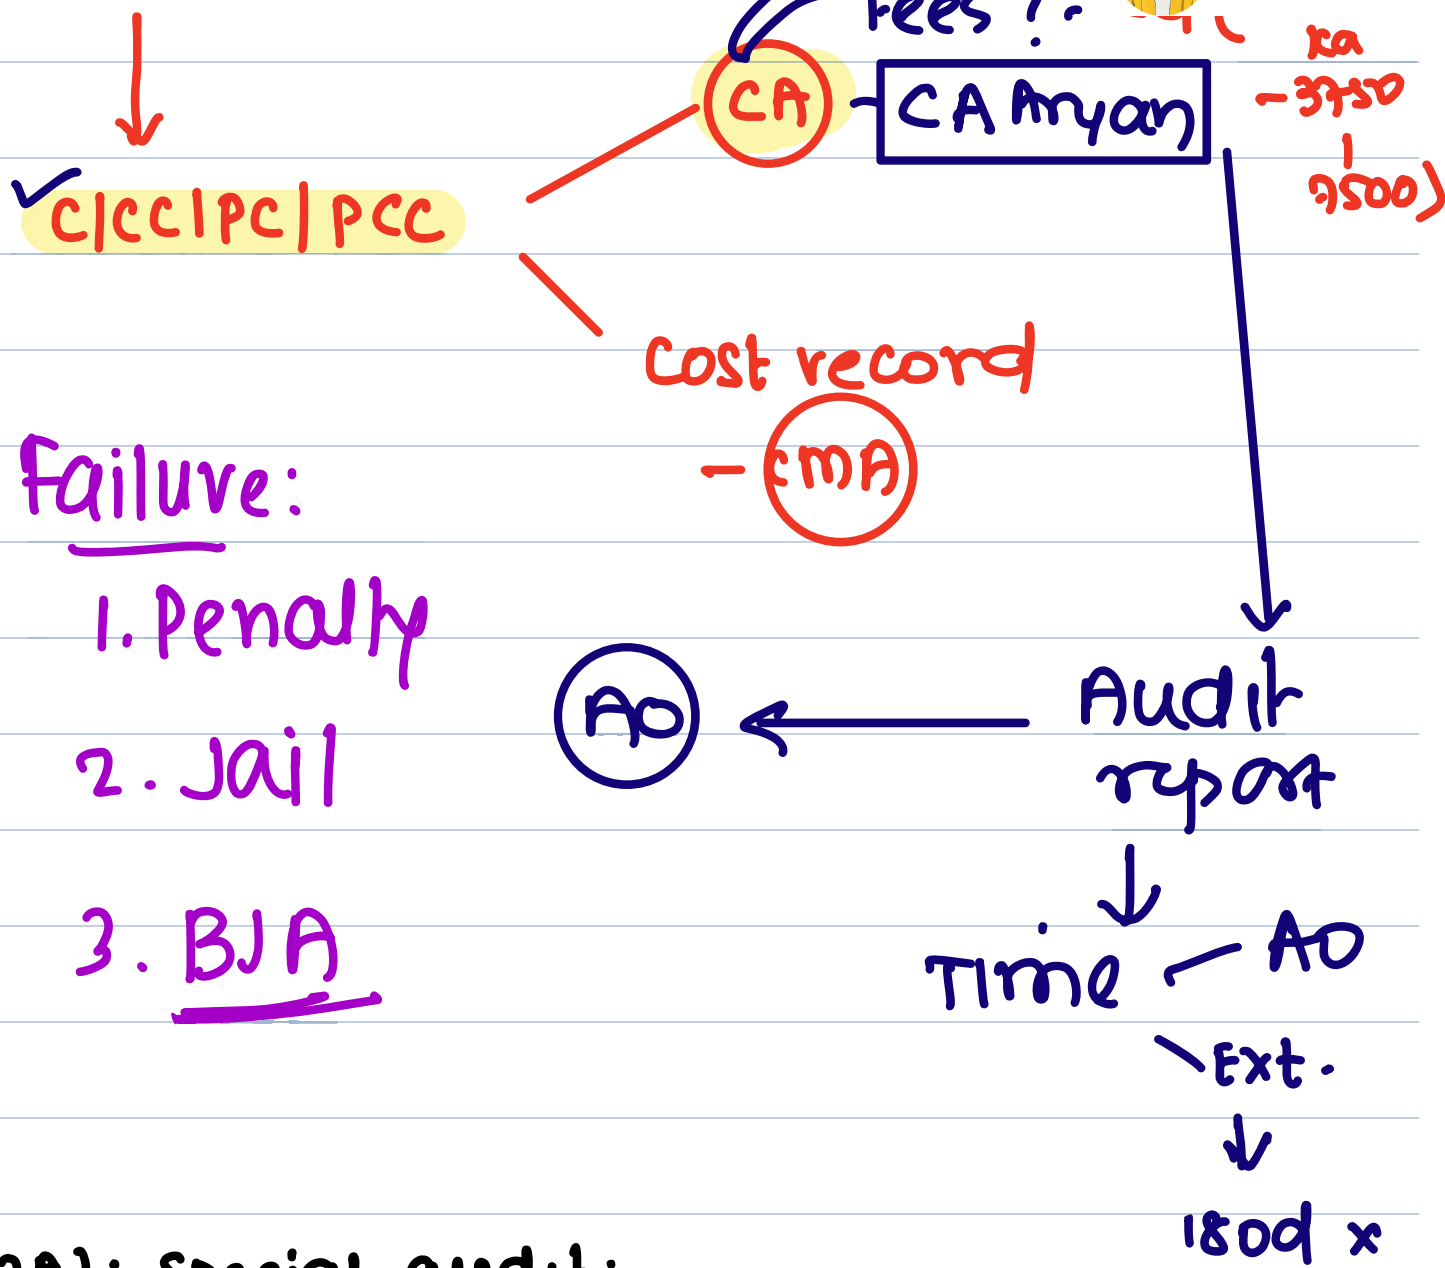 Fees ?:
CA - CA Aryan
ka
- 3750
|
7500)
C|CC|PC|PCC
Cost record
- CMA
Failure:
1. Penalty
2. Jail
3. BJA
AO
Audit
report
Time - AO
Ext.
180d x
special audit: